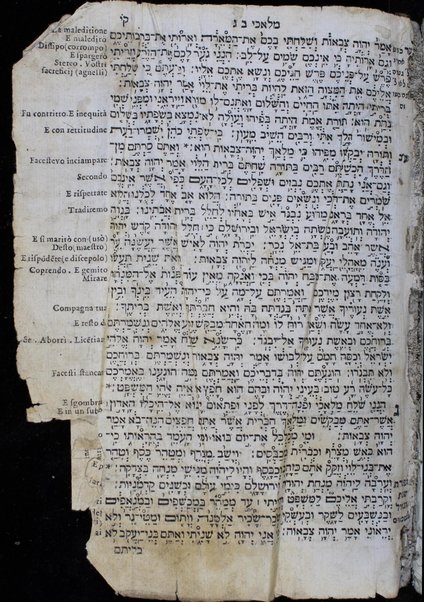 מלאכי ב ג
קי
אמר יהוה צבאות ושלחתי בכם את־המארה וארותי את־ברכותיכם
וגם ארותיה כי אינכם שמים על־לב: הנני גער לכם את־הזרע וזריתי
פרש על־פניכם פרש חגיכם ונשא אתכם אליו: וידעתם כי שלחתי
אליכם את המצוה הזאת להיות בריתי את־לוי אמר יהוה צבאות:
בריתי היתה אתו החיים והשלום ואתנם־לו מורא וייראני ומפני שמי
נחת הוא: תורת אמת היתה בפיהו ועולה לא־נמצא בשפתיו בשלום
ובמישור הלך אתי ורבים השיב מעון: כי־שפתי כהן ישמרו־דעת
ותורה יבקשו מפיהו כי מלאך יהוה־צבאות הוא: ואתם סרתם מן־
הדרך הכשלתם רבים בתורה שחתם ברית הלוי אמר יהוה צבאות:
וגם־אני נתתי אתכם נבזים ושפלים לכל־העם כפי אשר אינכם
שמרים את־דרכי ונשאים פנים בתורה: הלוא אב אחד לכלנו הלא
אל אחד בראנו מדוע נבגד איש באחיו לחלל ברית אבתינו: בגדה
יהודה ותועבה נעשתה בישראל ובירושלם כי חלל יהודה קדש יהוה
אשר אהב ובעל בת־אל נכר: יכרת יהוה לאיש אשר יעשנה ער
וענה מאהלי יעקב ומגיש מנחה ליהוה צבאות: וזאת שנית תעשו
כסות דמעה את־מזבח יהוה בכי ואנקה מאין עוד פנות אל־המנחה
ולקחת רצון מידכם: ואמרתם על־מה על כי־יהוה העיד בינך ובין
אשת נעוריך אשר אתה בגדתה בה והיא חברתך ואשת בריתך:
ולא־אחד עשה ושאר רוח לו ומה האחד מבקש זרע אלהים ונשמרתם
ברוחכם ובאשת נעוריך אל־יבגד: כי־שנא שלח אמר יהוה אלהי
ישראל וכסה חמס על־לבושו אמר יהוה צבאות ונשמרתם ברוחכם
ולא תבגדו: הוגעתם יהוה בדבריכם ואמרתם במה הוגענו באמרכם
כל־עשה רע טוב בעיני יהוה ובהם הוא חפץ או איה אלהי המשפט:
הנני שלח מלאכי ופנה־דרך לפני ופתאום יבוא אל־היכלו האדון
אשר־אתם מבקשים ומלאך הברית אשר־אתם חפצים הנה־בא אמר
יהוה צבאות: ומי מכלכל את־יום בואו ומי העמד בהראותו כי־
הוא כאש מצרף וכברית מכבסים: וישב מצרף ומטהר כסף וטהר
את־בני־לוי וזקק אתם כזהב וככסף והיו ליהוה מגישי מנחה בצדקה:
וערבה ליהוה מנחת יהודה וירושלם כימי עולם וכשנים קדמניות:
וקרבתי אליכם למשפט והייתי עד ממהר במכשפים ובמנאפים
ובנשבעים לשקר ובעשקי שכר־שכיר אלמנה ויתום ומטי־גר ולא
יראוני אמר יהוה צבאות: כי אני יהוה לא שניתי ואתם בני־יעקב לא
כליתם
La maleditione
E maledirò
Dissipo (corrompo)
E spargerò
Stereo. Vostri
sacreficij (agnelli)
Fu contritto. E inequità
E con rettitudine
Facestevo inciampare
Secondo
E rispettate
Traditemo
E si maritò con (usò)
Desto (maestro)
E rispódēte (e discepolo)
Coprendo. E gemito
Mirare
Compagna tua
E resto
Aborrì. Licētia
Facesti stancar
E sgombra
E in un subito